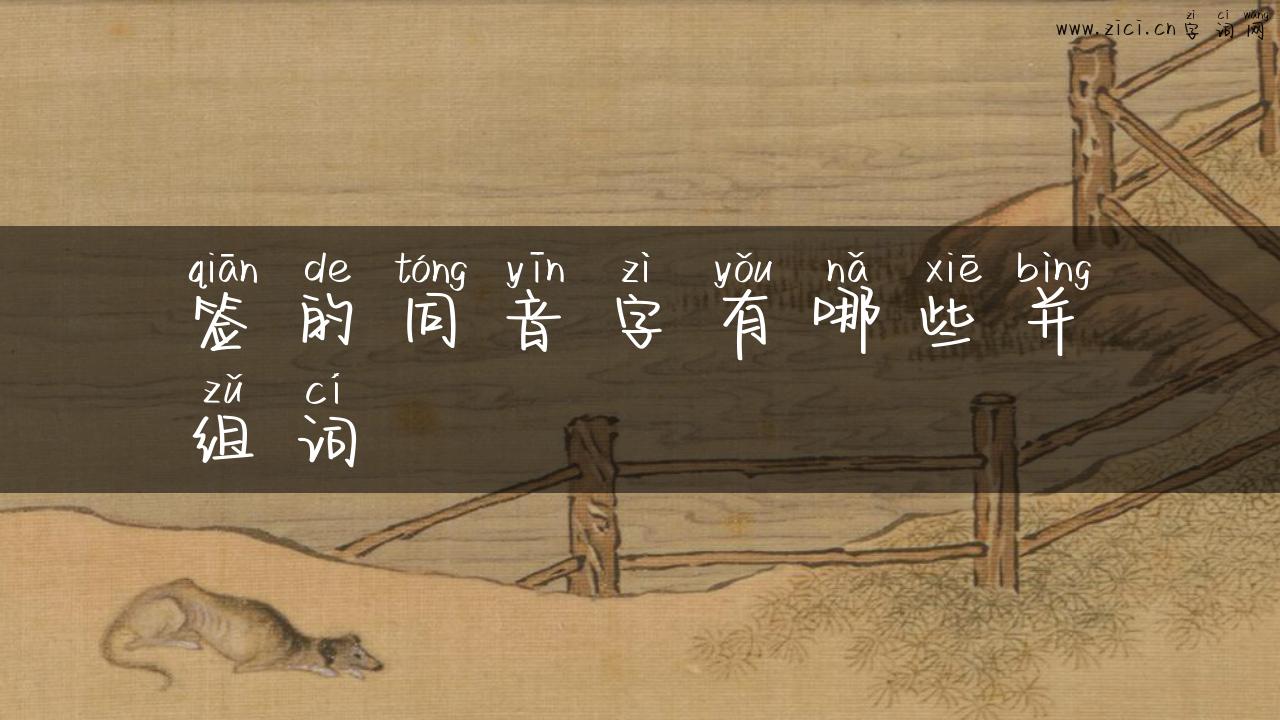 zi ci wang
www.zici.cn字词网
qiān de tóng yīn zì yǒu nǎ xiē bìng
签的同音字有哪些并
zǔ cí
组词